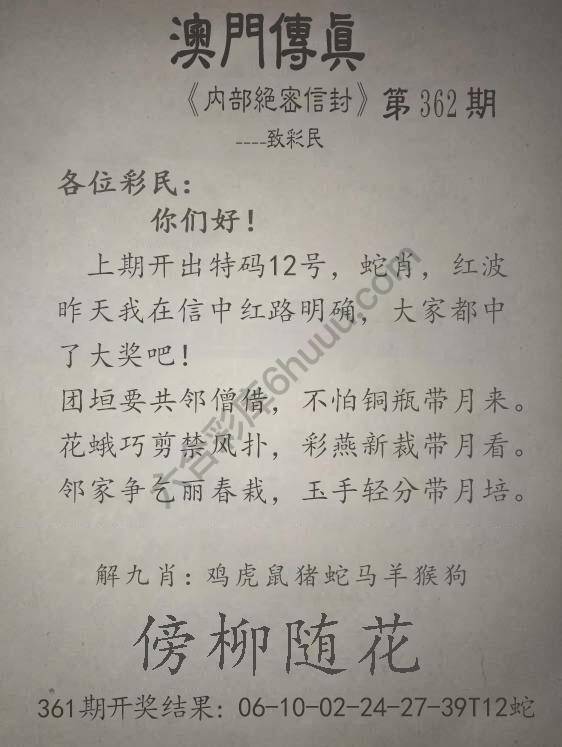 澳門傳真
《内部絕密信封》第362期
----致彩民
各位彩民：
你们好！
上期开出特码12号，蛇肖，红波
昨天我在信中红路明确，大家都中
了大奖吧！
团垣要共邻僧借，不怕铜瓶带月来。
花蛾巧剪禁风扑，彩燕新裁带月看。
邻家争乞丽春栽，玉手轻分带月培。
解九肖：鸡虎鼠猪蛇马羊猴狗
傍柳随花
361期开奖结果：06-10-02-24-27-39T12蛇
六合彩库6huuu.com